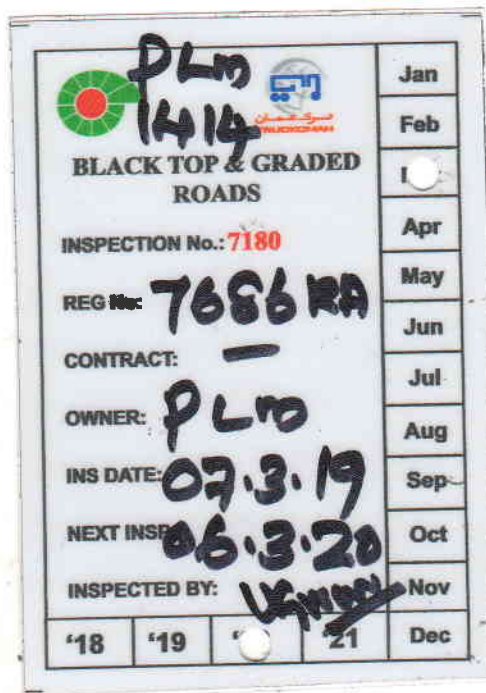 PLM
1414
BLACK TOP & GRADED
ROADS
INSPECTION No.: 7180
REG No: 7686 RA
CONTRACT: —
OWNER: PLM
INS DATE: 07.3.19
NEXT INSP 06.3.20
INSPECTED BY:
'18 '19 '21
Jan
Feb
Apr
May
Jun
Jul
Aug
Sep
Oct
Nov
Dec